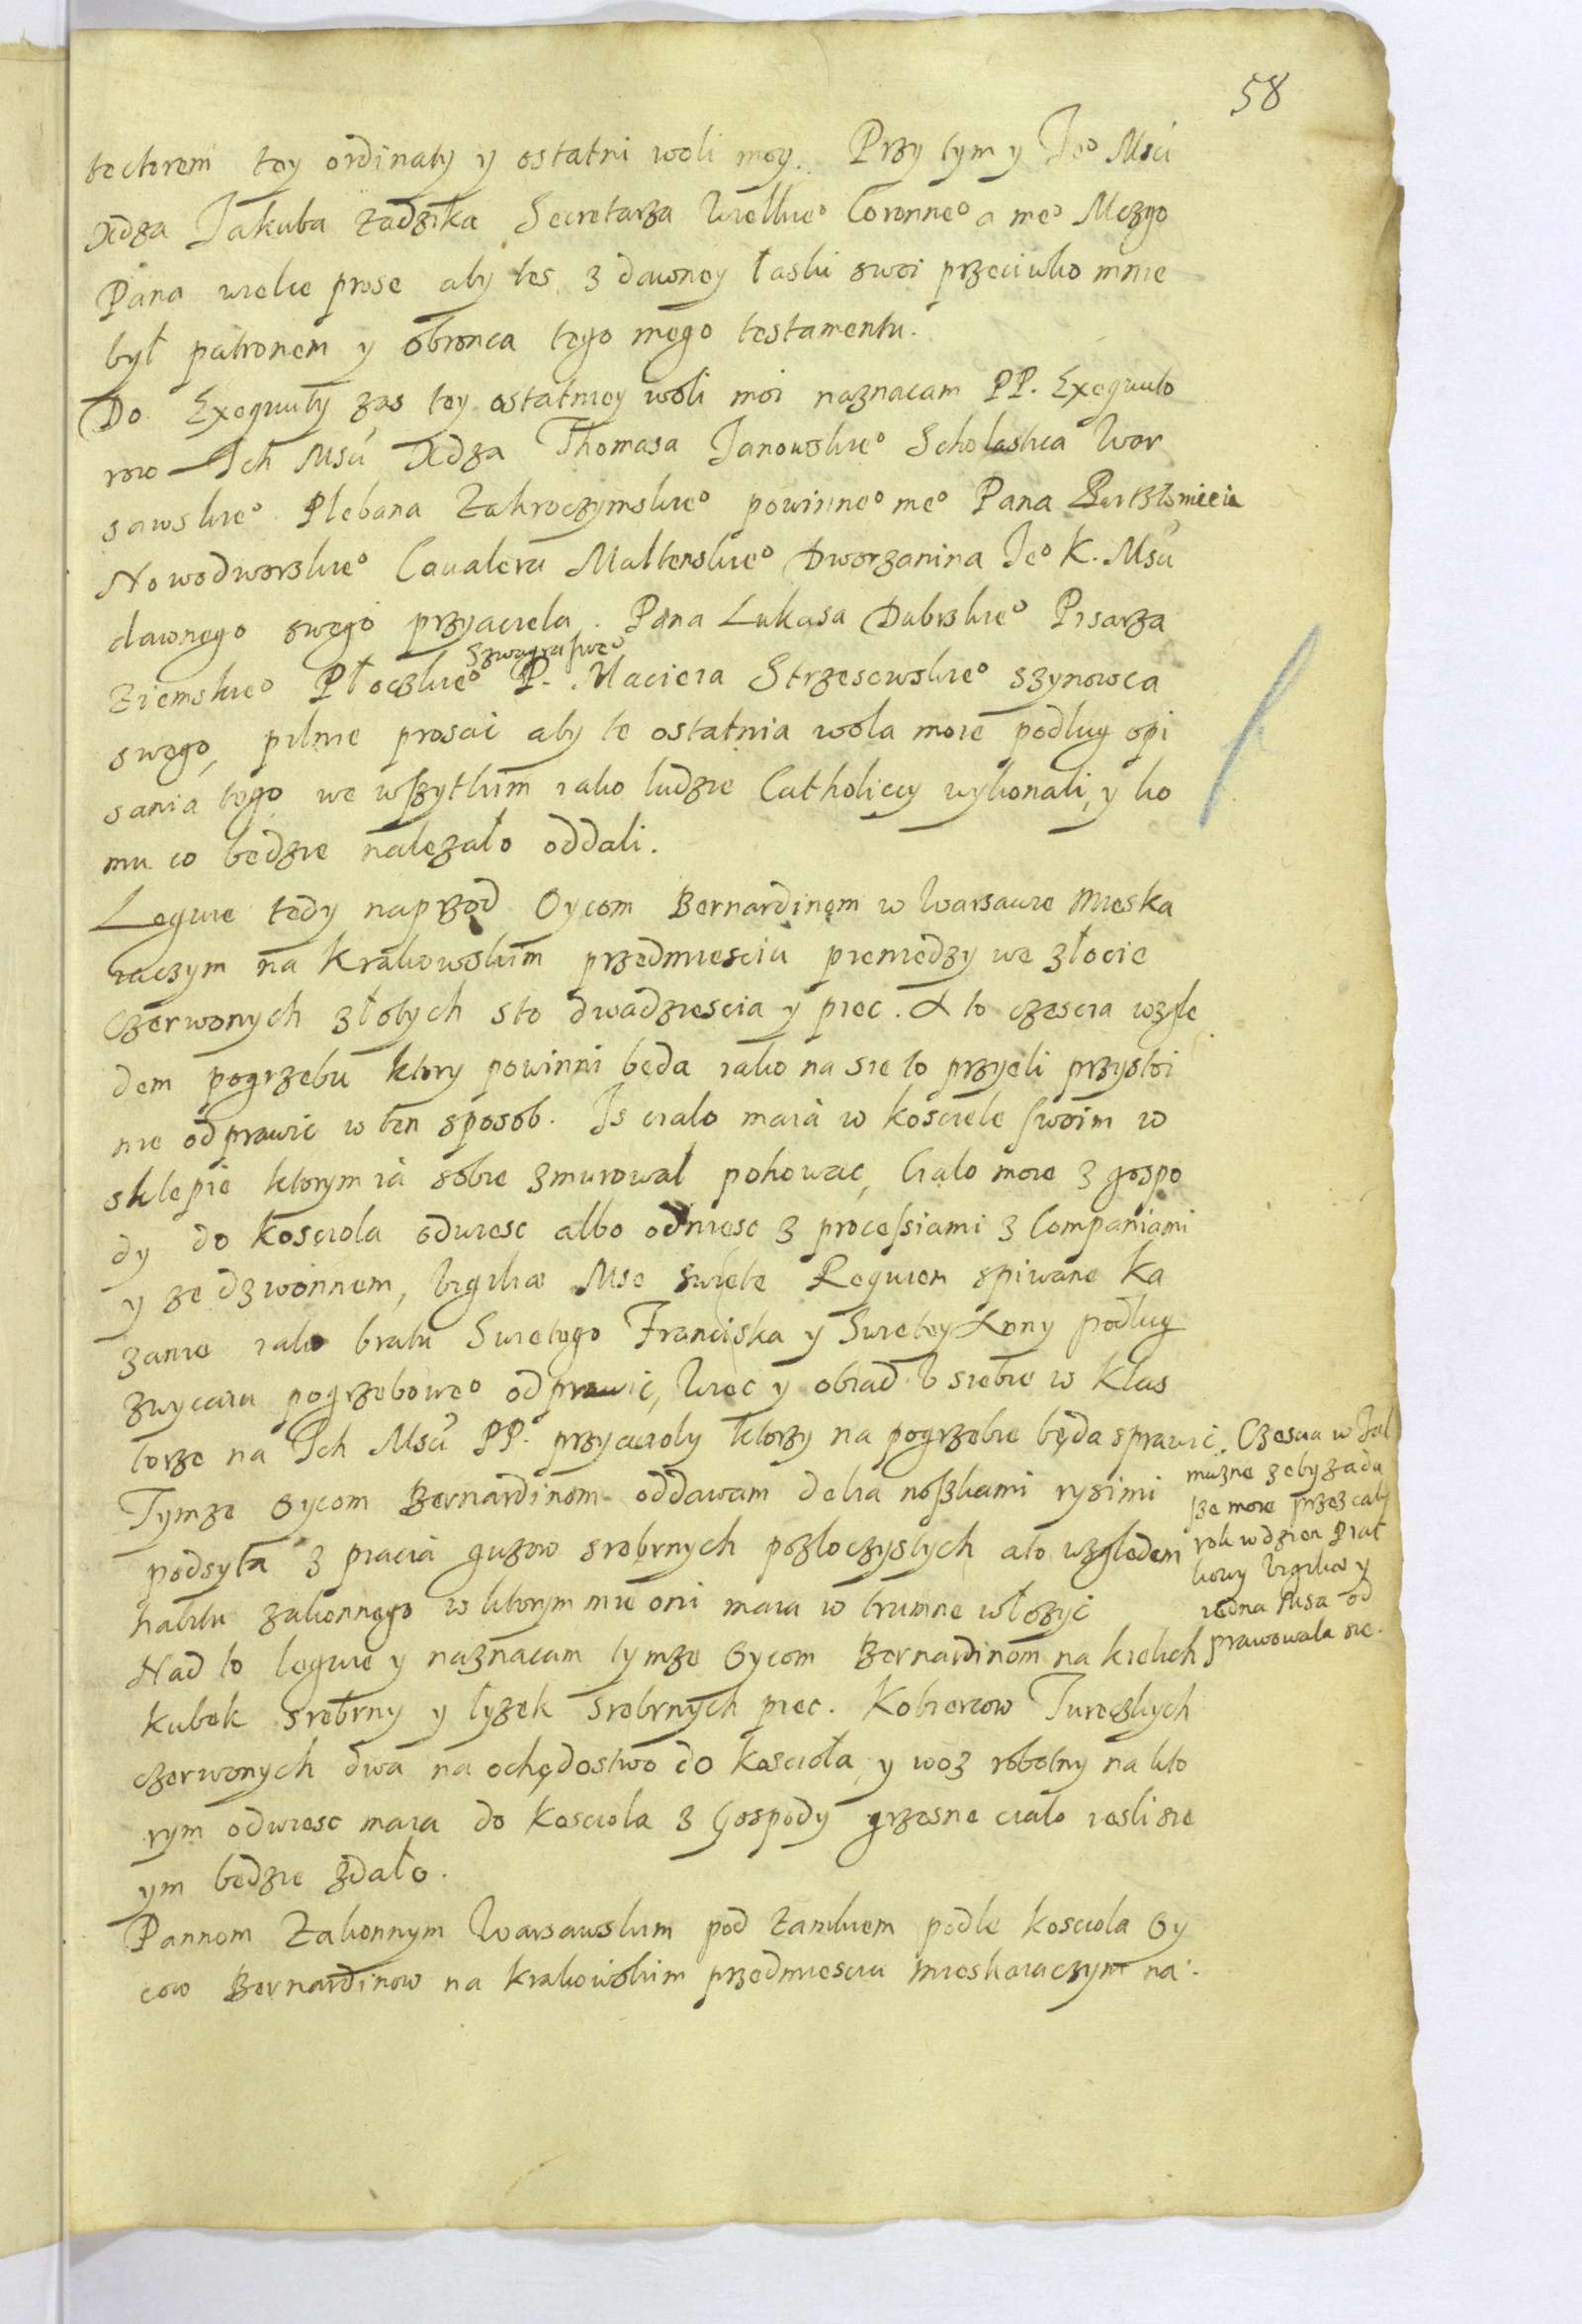 58
tectorem tey ordinaty y ostatni woli moy. Przy tym y Jeo Msci
Xdza Jakuba Zadzika Secretarza Wielkieo Coronneo a meo Mczgo
Pana wielce prose aby tes z dawney łaski swoi przeciwko mnie
był patronem y obronca tego mego testamentu.
Do Exequuty zas tey ostatniey woli moi naznacam PP. Exequuto
row Ich Msci Xdza Thomasa Janowskieo Scholastica War
sawskieo Plebana Zakroczymskieo powinneo meo Pana Bartłomieia
Nowodworskieo Cavalera Maltenskieo Dworzanina Jeo K. Msci
dawnego swego przyaciela. Pana Lukasa Dubrskieo Pisarza
szwagra sweo
Ziemskieo Płoczkieo P. Macieia Strzesewskieo szynowca
swego, pilnie prosąc aby te ostatnia wola moie podlug opi
sania tego we wszytkim iako ludzie Catholiccy wykonali, y ko
mu co bedzie nalezało oddali.
Leguie tedy naprzod Oycom Bernardinom w Warsawie mieska
iaczym na Krakowskim przedmiesciu pieniedzy we złocie
Czerwonych złotych sto dwadziescia y piec. A to czescia wzgle
dem pogrzebu ktory powinni będa iako na sie to przyeli przystoi
nie odprawic w ten sposob. Is cialo maia w kosciele swoim w
sklepie ktorym ia sobie zmurował pohowac, Cialo moie z gospo
dy do Kosciola odwiesc albo odniesc z processiami z Companiami
y ze dzwonnem, Vigiliæ Mse swiete Requiem spiwane Ka
zanie iako bratu Swietego Franciska y Swietey Anny podlug
zwycaiu pogrzeboweo odprawic, Wiec y obiad v siebie w Klas
torze na Ich Msci PP. przyacioly ktorzy na pogrzebie będa sprawic. Czescia w Jal
muzne zeby za du
sze moie przez caly
rok w dzien Piat
kowy Vigiliæ y
iedna Msa od
prawowala sie.
Tymze Oycom Bernardinom oddawam delia noszkami rysimi
podsyta z piacia guzow srebrnych pozloczystych a to względem
habitu zakonnego w ktorym mie oni maia w trumne włozyc
Nad to leguie y naznacam tymze Oycom Bernardinom na kielich
kubek srebrny y łyzek srebrnych piec. Kobiercow Tureczkych
czerwonych dwa na ochędostwo do Kascioła, y woz robotny na kto
rym odwiesc maia do Kosciola z Gospody grzesne cialo iesli sie
ym bedzie zdało.
Pannom Zakonnym Warsawskim pod Zamkiem podle kosciola Oy
cow Bernardinow na krakowskim przedmiesciu mieskaiaczym na